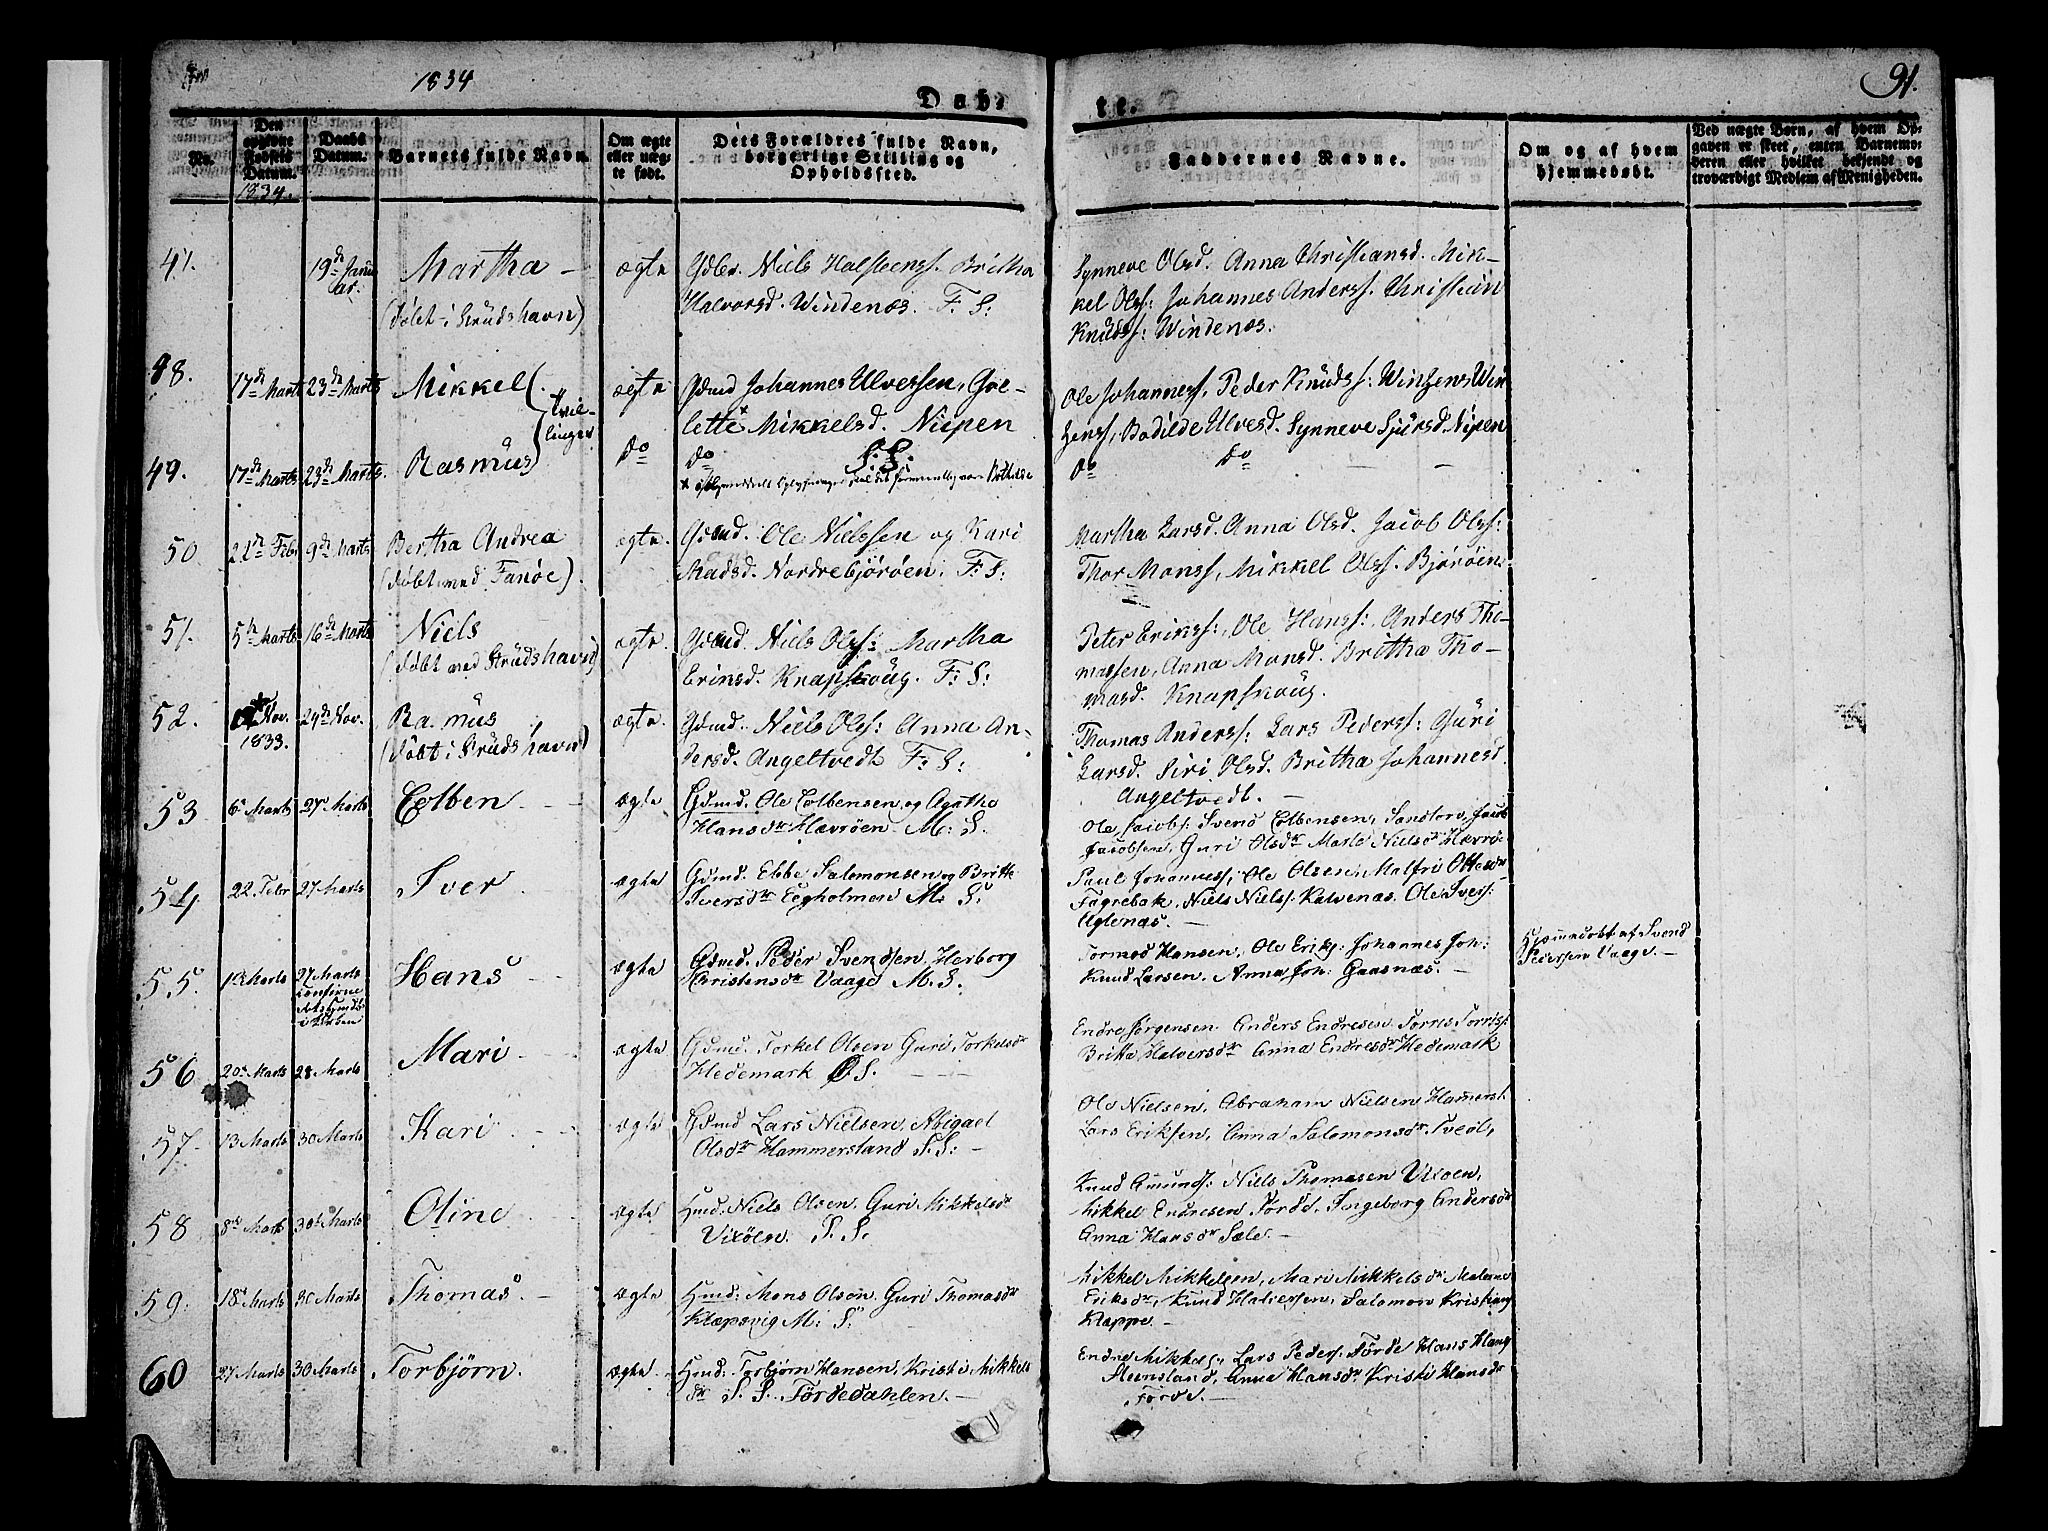 1834
91.
Døb-
te.
No.
Den opgivne Fødsels Datum.
1834.
Daabs Datum.
Barnets fulde Navn.
Om ægte eller uægte født.
Dets Forældres fulde Navn, borgerlige Stilling og Opholdssted.
Faddernes Navne.
Om og af hvem hjemmedøbt.
Ved uægte Børn, af hvem Opgaven er skeet, enten Barnemoderen eller hvilket bekjendt og troværdigt Medlem af Menigheden.
47.
19de Januar.
Martha
(døbt i Strudshavn)
ægte
Niels Halsteens. Britha
Halvorsd. Windenæs. F: S:
Synneve Olsd. Anna Christiansd. Mik-
kel Ols: Johannes Anderss. Christian
Knuds: Windenæs.
48.
17de Marts
23de Marts
Mikkel
tvil-
linger
ægte
Gdmd Johannes Ulvessen,
Mikkelsd. Niipen
Ole Johanness, Peder Knuds: Winzens Win
zenss, Bodilde Ulvesd. Synneve Sjursd. Nipen
49.
17de Marts
23de Marts.
Rasmus
Do
Do S: S.
Do Do
50
Febr
9de Marts
Bertha Andrea
(døbt ved Fanøe).
ægte.
Gdmd. Ole Nielssen og Kari
Madsd. Nordrebjorøen. F: S:
Martha Larsd. Anna Olsd. Jacob Ols:
Thor Monss, Mikkel Olss. Bjorøen
51.
5te Marts
16de Marts
Niels
(døbt ved Strudshavn)
ægte.
Gdmd. Niels Ols: Martha
Knapskoug. F: S:
Peter Eriks:, Ole Hanss: Anders Tho-
massen, Anna Monsd. Britha Tho-
masd. Knapskoug.
52.
Nov.
1833.
24de Nov.
Rasmus
(døbt i Strudshavn)
ægte.
Gdmd. Niels Ols: Anna An-
dersd. Angeltvedt F: S:
Thomas Anderss: Lars Peders: Guri
Larsd. Siri Olsd. Britha Johannesd.
Angeltvedt.
53
6te Marts
27 Marts
Colben
ægte
Gdmd. Ole Colbensen og Agatha
Hansdtr Hævrøen. M: S.
Ole Jacobs: Svend Colbensen, Sandtorv, Jacob
Jacobsen, Guri Olsdtr Marte Nielsdtr
54
22 Febr
27 Marts
Iver
ægte
Gdmd. Ebbe Salomonsen og Britte
Iversdtr Eegholmen M: S.
Paul Johanness, Ole Olsen, Malfri Ottesdtr
Fagrebak, Niels Niels: Kalvenæs. Ole Ivers:
Uglenæs.
55
Marts
27 Marts
Hans
ægte
Gdmd. Peder Svendsen, Herborg
Christensdtr Vaage M. S.
Tormod Hansen, Ole Erik: Johannes Joh:
Knud Larsen. Anna Joh: Gaasnæs.
Hjemmedøbt af Svend
Pedersen Vaage.
56
20de Marts
28 Marts
Mari
ægte
Gdmd. Torkel Olsen Guri Torkelsdr
Hedemark Ø. S.
Endre Jørgensen Anders Endresen Torris Torriss:
Britta Halversdtr Anna Endresdtr Hedemark
57
13 Marts
30 Marts
Kari
ægte
Gdmd Lars Nielsen, Abigael
Olsdtr Hammersland S. S:
Ole Nielsen, Abraham Nielsen Hamersl.
Lars Eriksen, Anna Salomonsdr Tvedt,
58
8de Marts
30te Marts
Oline
ægte
Hmd: Niels Olsen, Guri Mikkelsdr
Vixøen. S. S.
Knud Amunds: Niels Thomasen Vixoen,
Mikkel Endresen Førde, Ingeborg Andersdr
Anna Hansdtr Sæle.
59.
18de Marts
30 Marts
Thomas
ægte
Hmd: Mons Olsen Guri Thomasdr
Klæpsvig M: S:
Mikkel Mikkelsen, Mari Mikkelsdr
Eriksdtr, Knud Halversen, Salomon
Kleppe
60
27 Marts
30 Marts
Torbjørn.
ægte.
Hmd: Torbjørn Hansen, Kristi Mikkels
dtr S. S. Førdedahlen.
Endre Mikkels, Lars Peders. Førde Hans
Steensland, Anna Hansdr Kristi Hansdr
Førde.